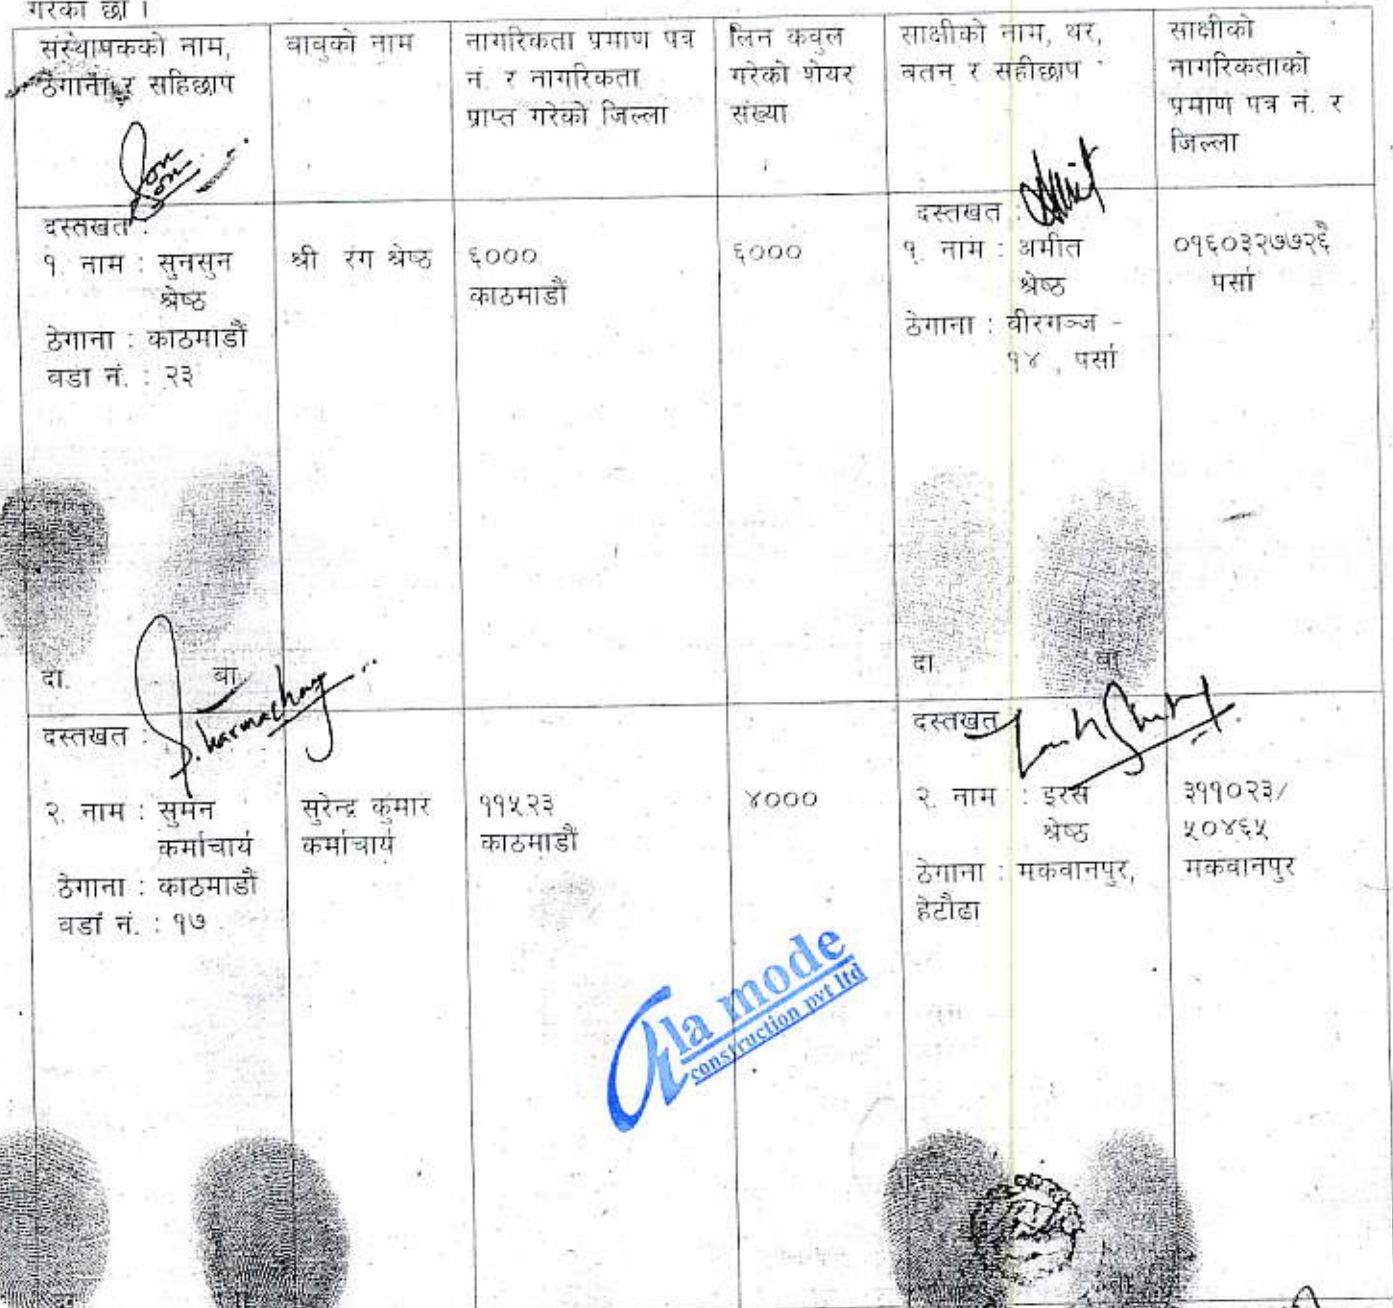 गरेका छौं ।
संस्थापकको नाम,
ठेगाना र सहिछाप
बाबुको नाम
नागरिकता प्रमाण पत्र
नं. र नागरिकता
प्राप्त गरेको जिल्ला
लिन कवुल
गरेको शेयर
संख्या
साक्षीको नाम, थर,
वतन र सहीछाप
साक्षीको
नागरिकताको
प्रमाण पत्र नं. र
जिल्ला
दस्तखत :
१. नाम : सुनसुन
श्रेष्ठ
ठेगाना : काठमाडौं
वडा नं. : २३
दा. बा.
श्री रंग श्रेष्ठ
६०००
काठमाडौं
६०००
दस्तखत :
१. नाम : अमीत
श्रेष्ठ
ठेगाना : वीरगञ्ज -
१४ , पर्सा
दा. बा.
०१६०३२७७२६
पर्सा
दस्तखत :
S. Karmachay
२. नाम : सुमन
कर्माचार्य
ठेगाना : काठमाडौं
वडा नं. : १७
सुरेन्द्र कुमार
कर्माचार्य
११५२३
काठमाडौं
४०००
दस्तखत
२. नाम : इरस
श्रेष्ठ
ठेगाना : मकवानपुर,
हेटौढा
३११०२३/
५०४६५
मकवानपुर
Ala mode
construction pvt ltd